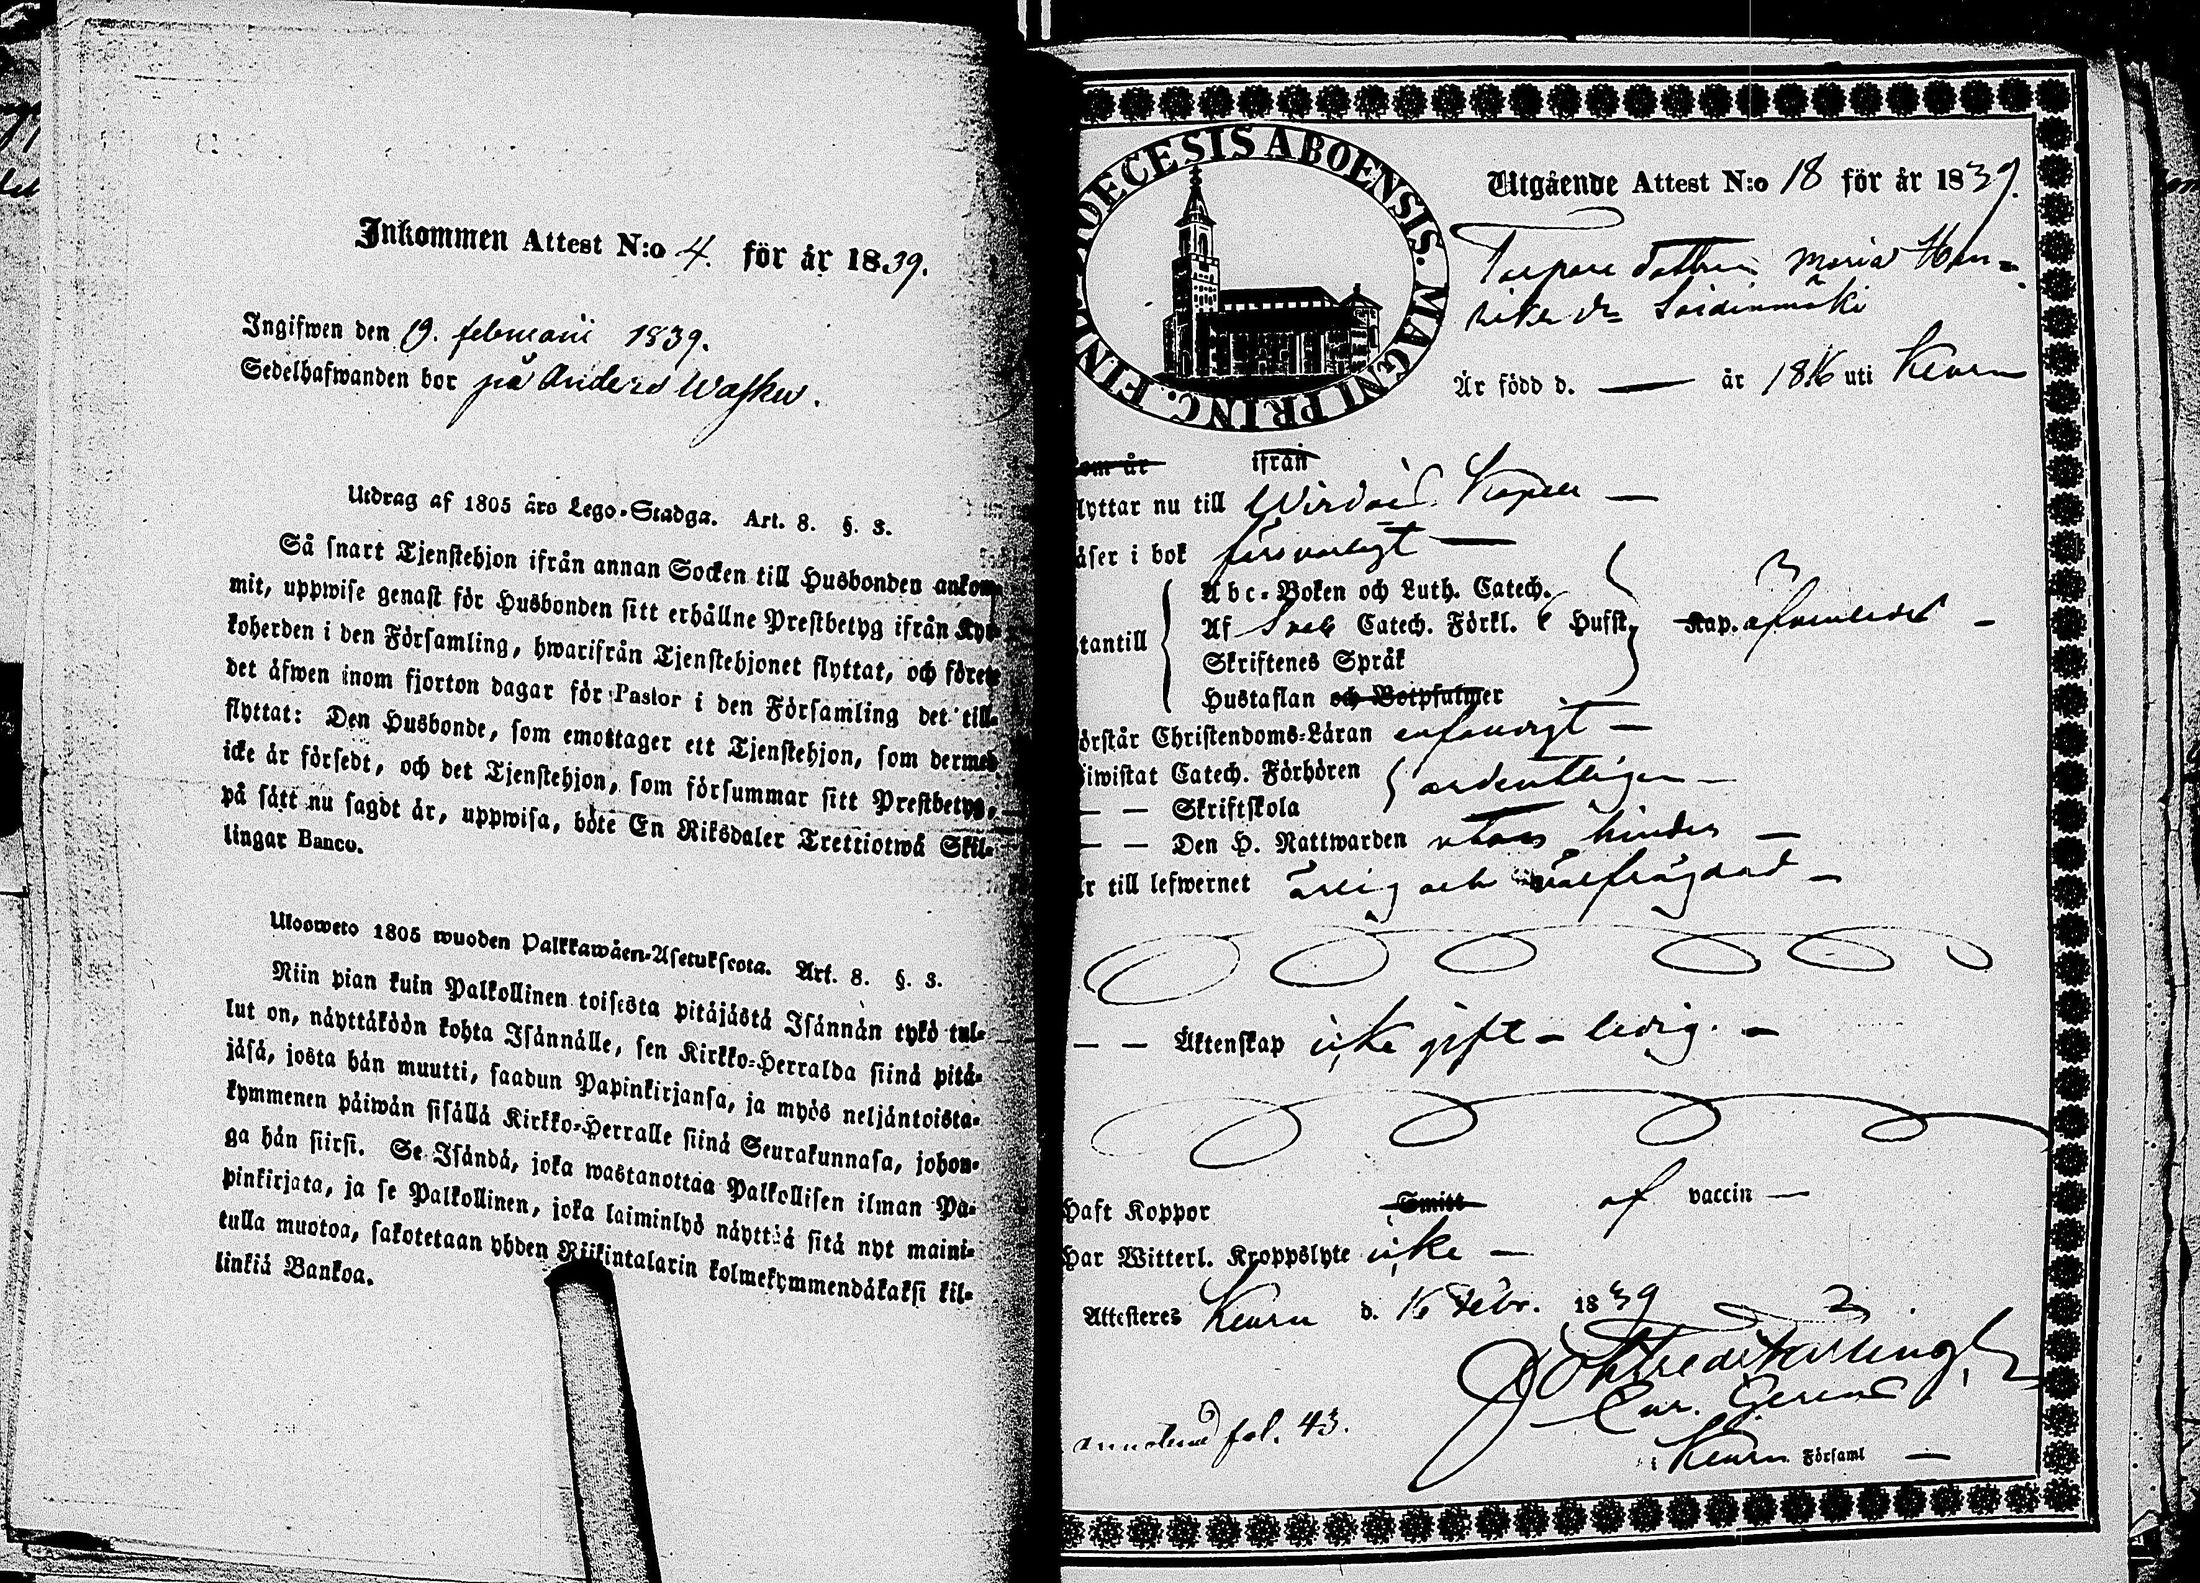 Inkommen Attest N:o 4. för år 1839.
Ingifwen den 19. februarii 1839.
Sedelhafwanden bor på Anders Wasku.
Utdrag af 1805 års Lego-Stadga. Art. 8. §. 3.
Så snart Tjenstehjon ifrån annan Socken till Husbonden ankom-
mit, uppwise genast för Husbonden sitt erhållne Prestbetyg ifrån Kyr-
koherden i den Församling, hwarifrån Tjenstehjonet flyttat, och förete
det äfwen inom fjorton dagar för Pastor i den Församling det till-
flyttat: Den Husbonde, som emottager ett Tjenstehjon, som dermed
icke är försedt, och det Tjenstehjon, som försummar sitt Prestbetyg,
på sätt nu sagdt är, uppwisa, böte En Riksdaler Trettiotwå Skil-
lingar Banco.
Ulosweto 1805 wuoden Palkkawäen-Asetuksesta. Art. 8. §. 3.
Niin pian kuin Palkollinen toisesta pitäjästä Isännän tykö tul-
lut on, näyttäköön kohta Isännälle, sen Kirkko-Herralda siinä pitä-
jäsä, josta hän muutti, saadun Papinkirjansa, ja myös neljäntoista-
kymmenen päiwän sisällä Kirkko-Herralle siinä Seurakunnasa, johon-
ga hän siirsi. Se Isändä, joka wastanottaa Palkollisen ilman Pa-
pinkirjata, ja se Palkollinen, joka laiminlyö näyttää sitä nyt maini-
tulla muotoa, sakotetaan yhden Riikintalarin kolmekymmendäkaksi kil-
linkiä Bankoa.
DIOECESIS ABOENSIS. MAGNI PRINC. FINL.
Utgående Attest N:o 18 för år 1839.
Torpare dottren Maria Hen-
riks dr Soidinmäki
Är född d. — år 1816 uti Keuru
om är ifrån
lyttar nu till Wirdois Kapell —
äser i bok försvarligt —
Abc-Boken och Luth. Catech.
Af Sveb Catech. Förkl. Husst. Kap.
tantill
Skriftenes Språk
Hustaflan och Botpsalmer
örstår Christendoms-Läran enfaldigt —
iwistat Catech. Förhören ordentligen —
— — Skriftskola
— — Den H. Nattwarden utan hinder —
r till lefwernet ärlig och välfrägdad —
— — Äktenskap icke gift – ledig. —
Haft Koppor Smitt af vaccin —
Har Witterl. Kroppslyte icke —
Attesteres Keuru d. 16 Febr. 1839
Cur. Gerens
fol. 43.
i Keuru Församl —